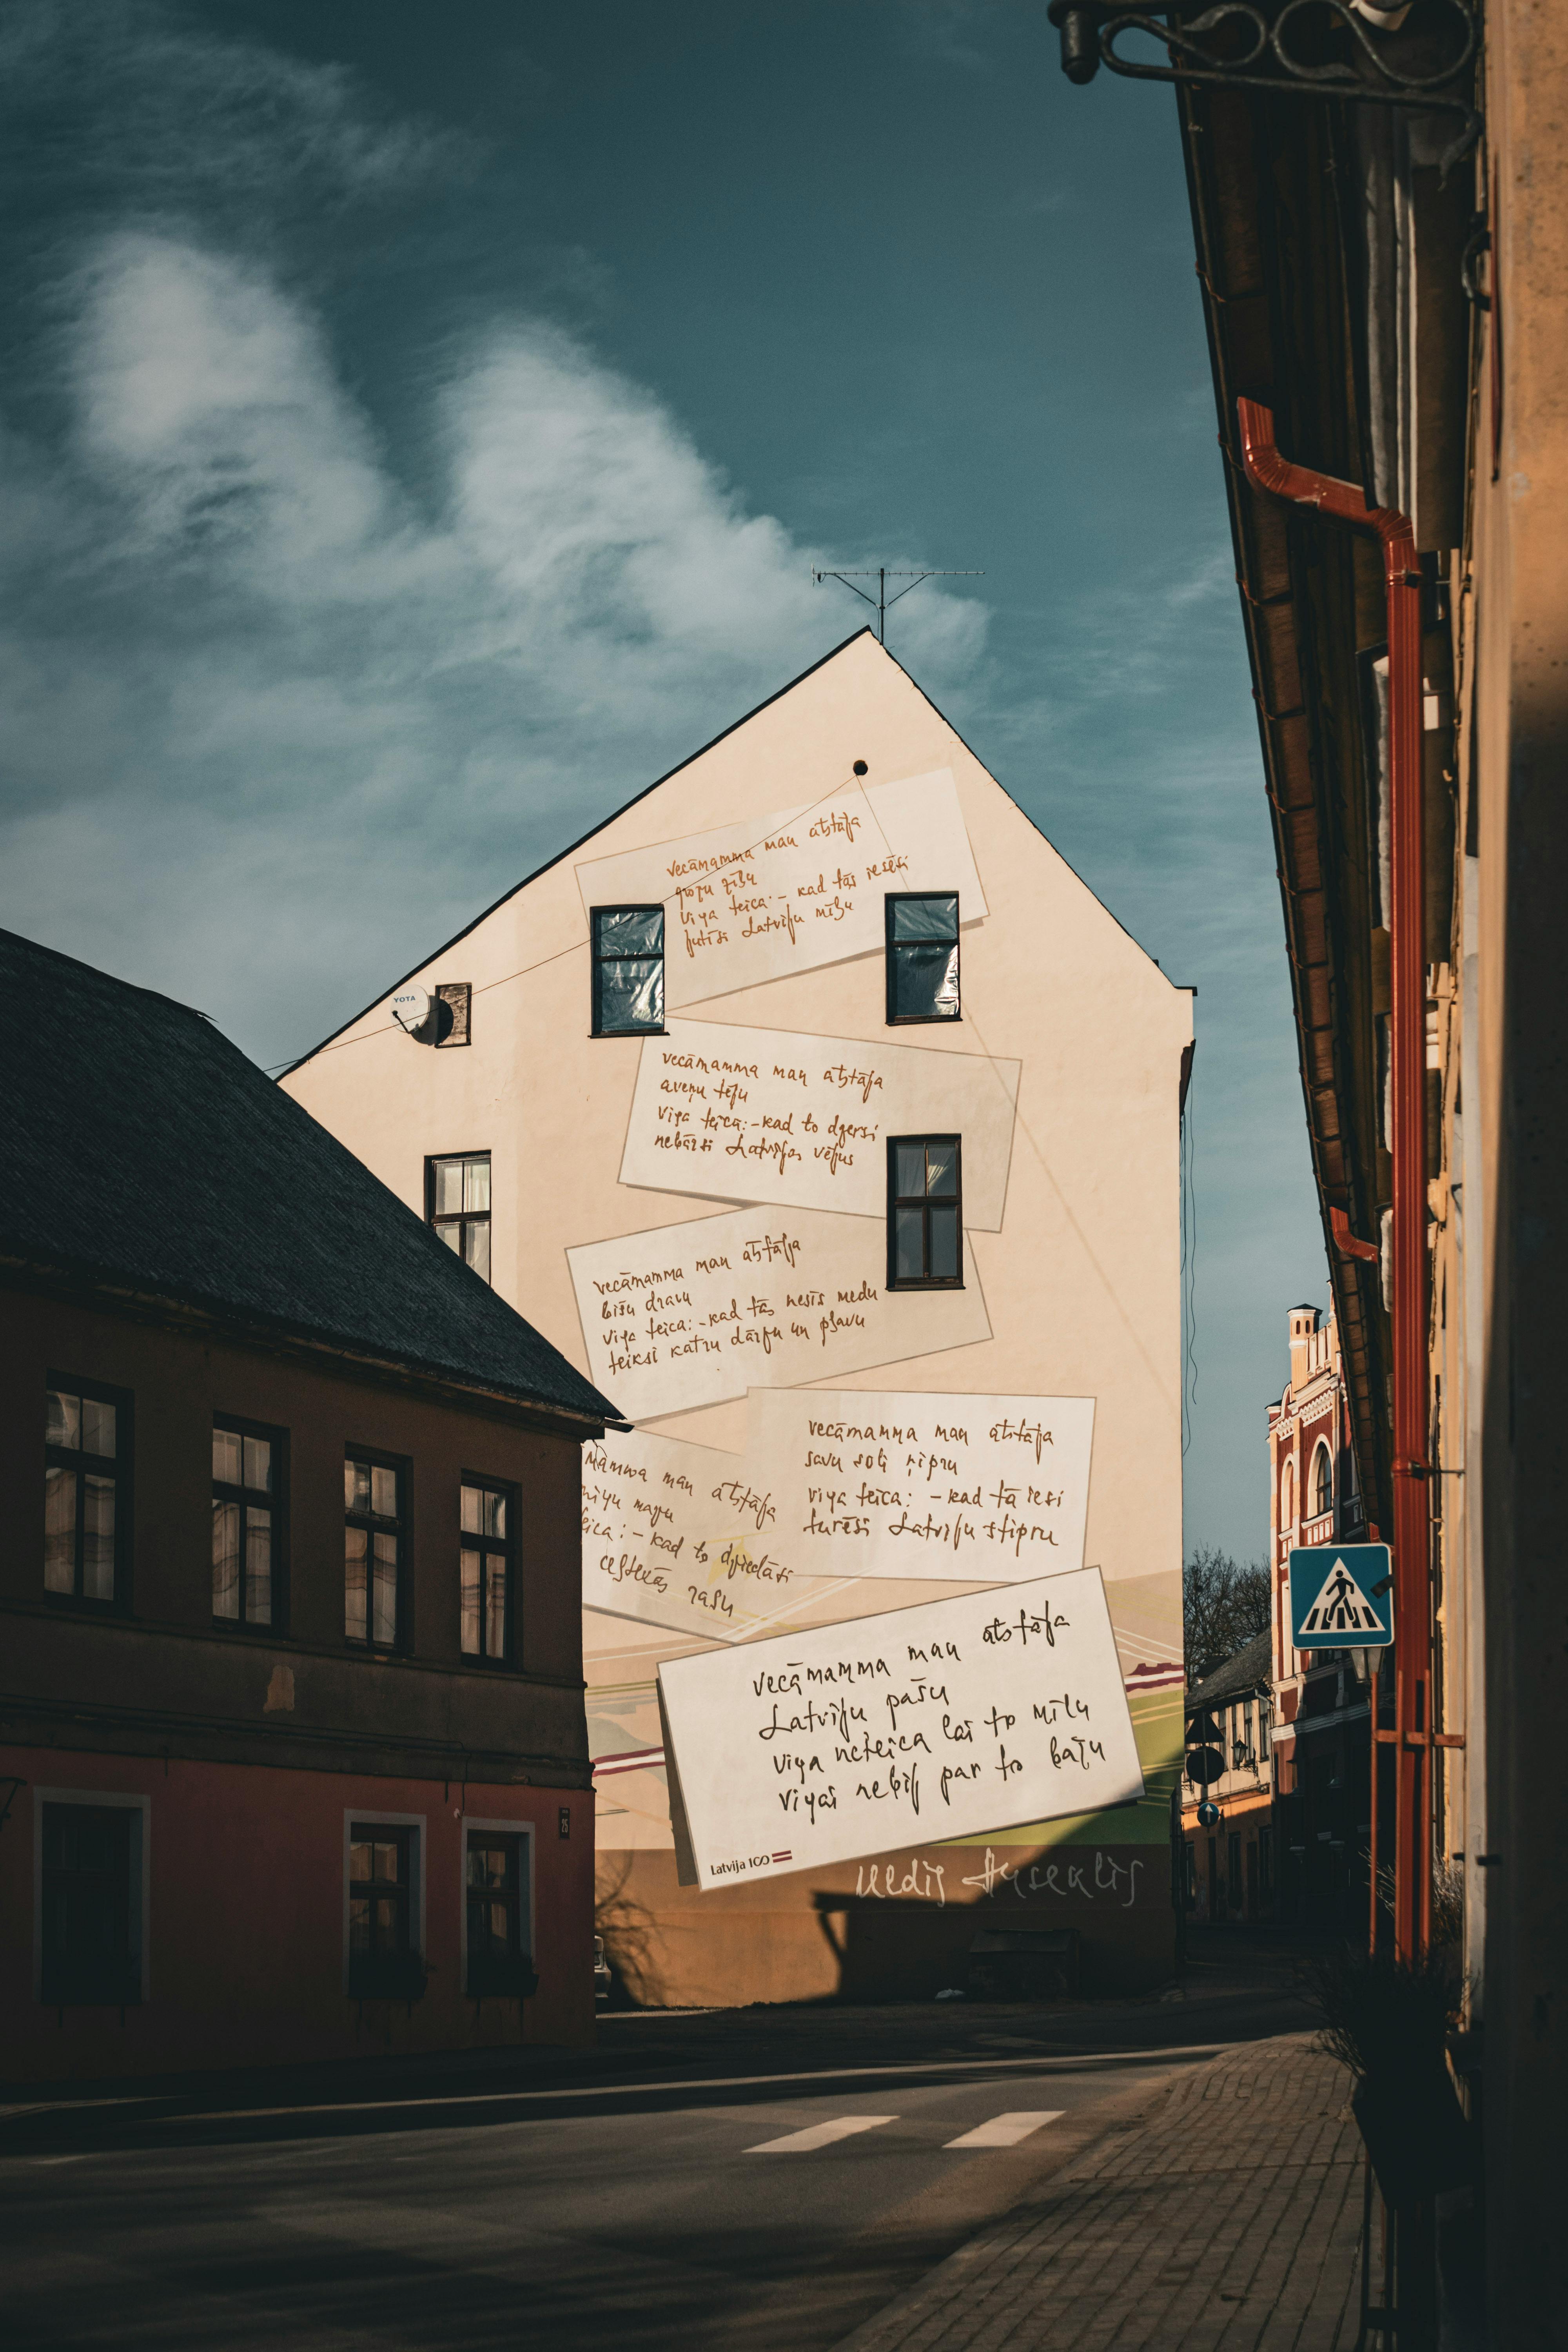 YOTA
vecāmamma man atstāja
govju zīžu
viņa teica: – kad tās iesēsi
jutīsi Latviju mīžu
vecāmamma man atstāja
aveņu tēju
viņa teica: – kad to dzersi
nebārsi Latvijas vējus
vecāmamma man atstāja
bišu dravu
viņa teica: – kad tās nesīs medu
teiksi katru dārzu un pļavu
mamma man atstāja
eica: – kad to dziedāsi
ceļtekās rasu
vecāmamma man atstāja
savu soli ņipru
viņa teica: – kad tā iesi
turēsi Latviju stipru
vecāmamma man atstāja
Latviju pašu
viņa neteica lai to mīlu
viņai nebij par to bažu
Latvija 100
25